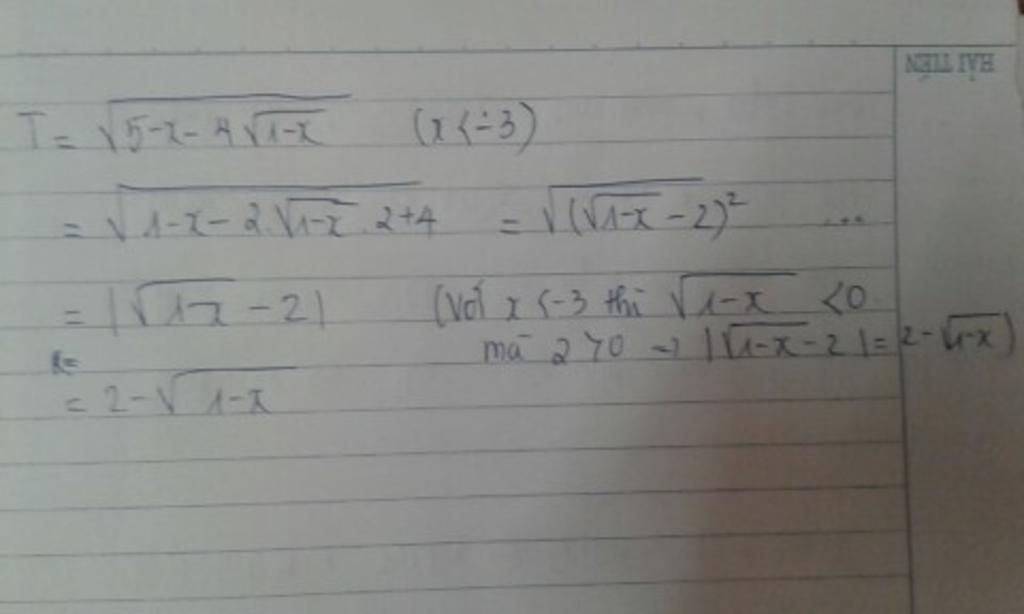 HẢI TIẾN
T = √(5-x-4√(1-x)) (x<-3)
= √(1-x-2.√(1-x).2+4) = √((√(1-x)-2)²) ...
= |√(1-x) - 2| (Với x<-3 thì √(1-x) <0
mà 2>0 → |√(1-x)-2|=2-√(1-x))
= 2-√(1-x)